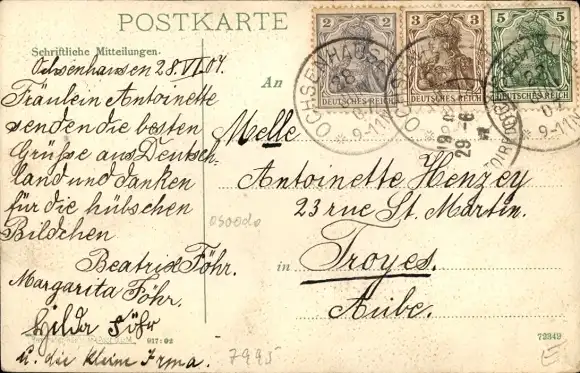 POSTKARTE
Schriftliche Mitteilungen.
Ochsenhausen 28.VI.07.
Fräulein Antoinette
senden die besten
Grüße aus Deutsch-
land und danken
für die hübschen
Bildchen
Beatrix Föhr.
Margarita Föhr.
Hilda Föhr
u. die kleine Irma.
917:02
2
3
5
DEUTSCHES REICH
DEUTSCHES REICH
DEUTSCHES REICH
OCHSENHAUSEN
9-11
29-6
An
Melle
Antoinette Henzey
23 rue St. Martin.
in
Troyes.
Aube.
osoodo
7995
72349
E